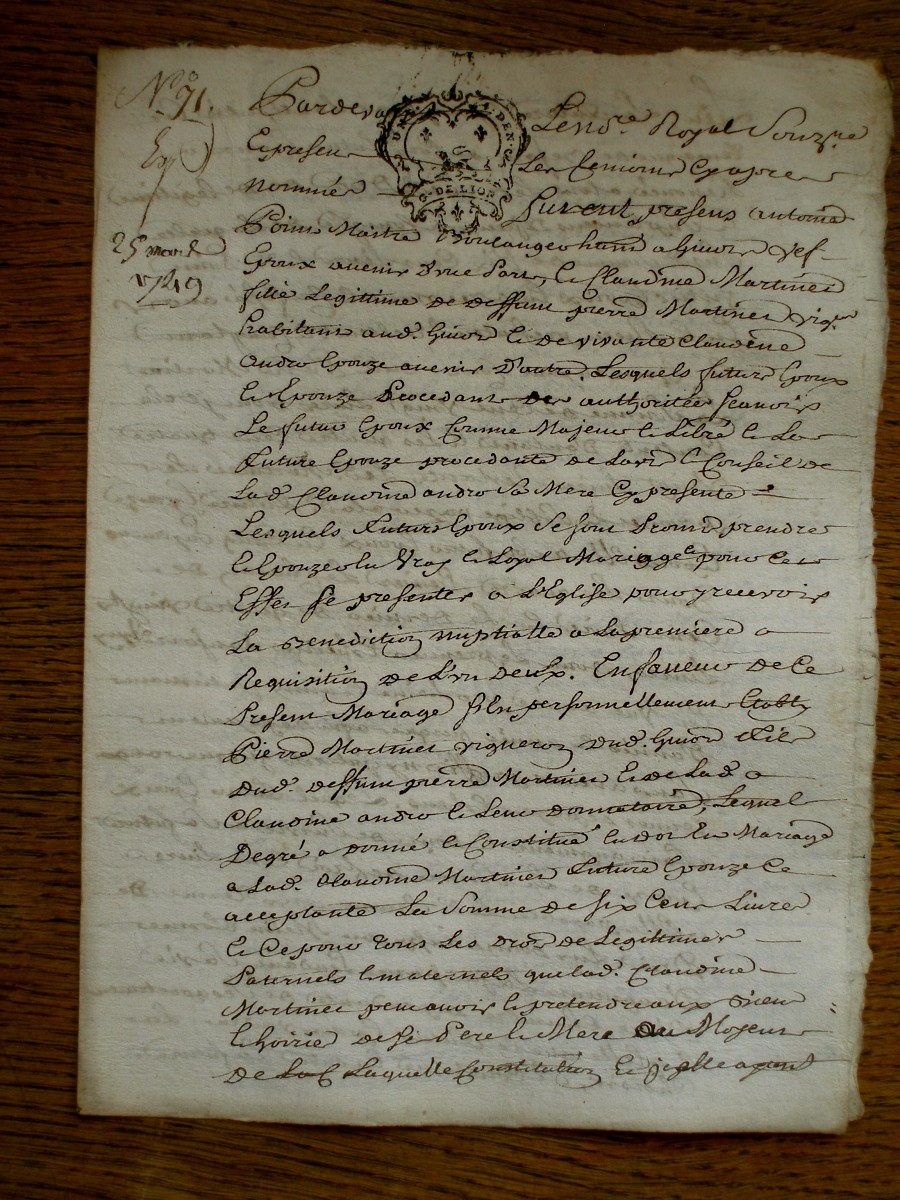 N.º 91.
Exp
25 mars
1749
Pardevant Le no.re Royal Souz.ne
Et presens Les temoins Cy apres
nommés
Furent presens Antoine
Poins Maitre Boulanger hant a Givors
Epoux avenir d'une part, & Claudine Martinet
fille Legittime de deffunt pierre Martinet vig.on
habitant aud. Givors & de vivante Claudine
andro Epouze avenir d'autre. Lesquels futurs Epoux
& Epouze Procedants des authoritées scavoir
Le futur Epoux comme Majeur & Libre & La
future Epouze procedante de Lavis & Conseil de
Lad. Claudine andro sa Mere Cy presente
Lesquels futurs Epoux se sont Promis prendre
& Epouzer en Vray & Loyal Mariage & pour Cet
Effet se presenter a L'Eglise pour y recevoir
La Benediction nuptialle a La premiere
Requisition de L'un deux. En faveur de Ce
Present Mariage s'est personnellement Etably
Pierre Martinet vigneron dud. Givors fils
dud. deffunt pierre Martinet & de Lad.
Claudine andro & Leur donnataire, Lequel
De gré a donné & Constitué en dot En Mariage
a Lad. Claudine Martinet future Epouze Ce
acceptante La Somme de six Cent Livres
& Ce pour tous Les droits de Legittimes
Paternels & maternels que Lad. Claudine
Martinet peut avoir & pretendre aux biens
& hoirie de Ses Pere & Mere au Moyen
de Laquelle Constitution